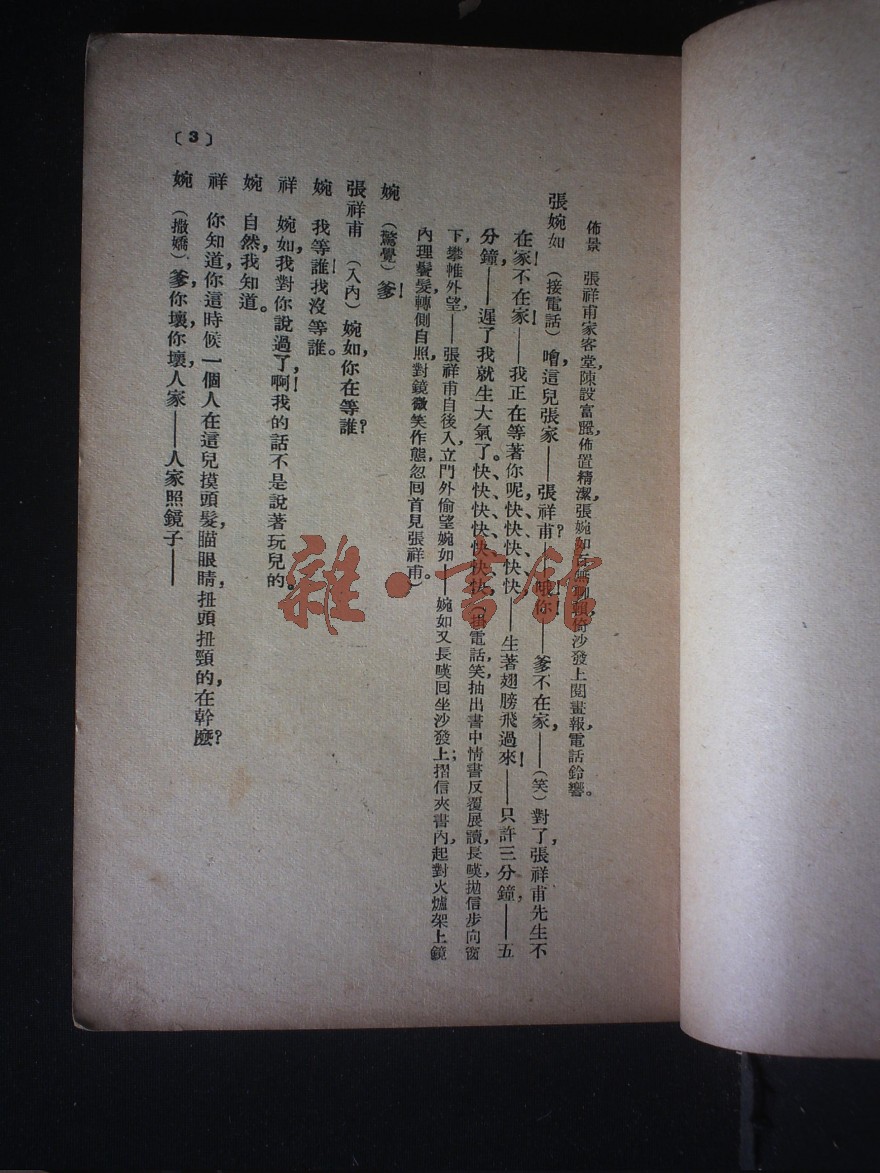 佈景　張祥甫家客堂，陳設富麗，佈置精潔，張婉如　倚沙發上閱畫報，電話鈴響。
張婉如　（接電話）噲，這兒張家——張祥甫？　你！——爹不在家，——（笑）對了，張祥甫先生不
在家！不在家！——我正在等著你呢，快、快、快、快、快、快——生著翅膀飛過來！——只許三分鐘，——五
分鐘——遲了我就生大氣了。快、快、快、快、快、快、快（掛電話，笑，抽出書中情書反覆展讀，長嘆，拋信步向窗
下，攀帷外望——張祥甫自後入，立門外偷望婉如——婉如又長嘆回坐沙發上；摺信夾書內，起對火爐架上鏡
內理鬢髮，轉側自照，對鏡微笑作態，忽回首見張祥甫。）
婉　（驚覺）爹！
張祥甫　（入內）婉如，你在等誰？
婉　我等誰！我沒等誰。
祥　婉如，我對你說過了，啊！我的話不是說著玩兒的。
婉　自然，我知道。
祥　你知道，你這時候一個人在這兒摸頭髮，瞄眼睛，扭頭扭頸的，在幹麼？
婉　（撒嬌）爹，你壞，你壞，人家——人家照鏡子——
〔3〕
雜·書館